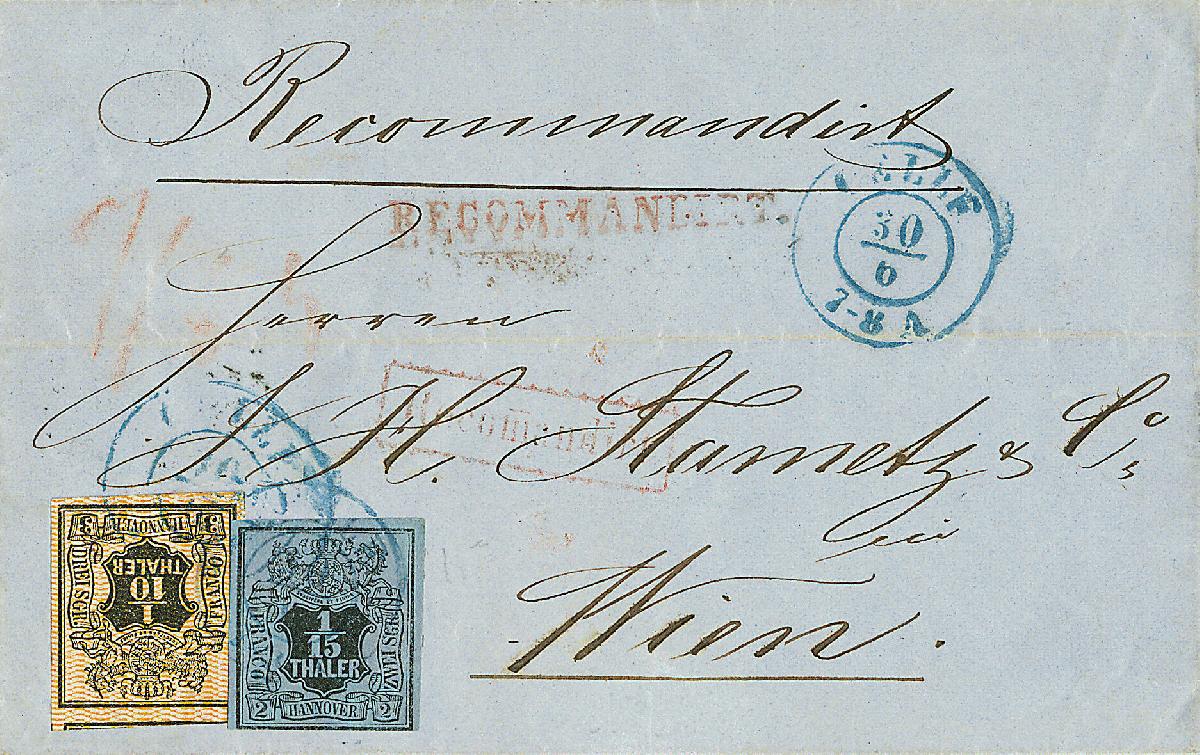 Recommandirt
CELLE
30
6
7-8 V
RECOMMANDIRT.
Herren
J. H. Stametz & Co,
Recomandirt
in
Wien.
CELLE
3 HANNOVER 3
DREI SGR
FRANCO
1
10
THALER
FRANCO
1
15
THALER
2 HANNOVER 2